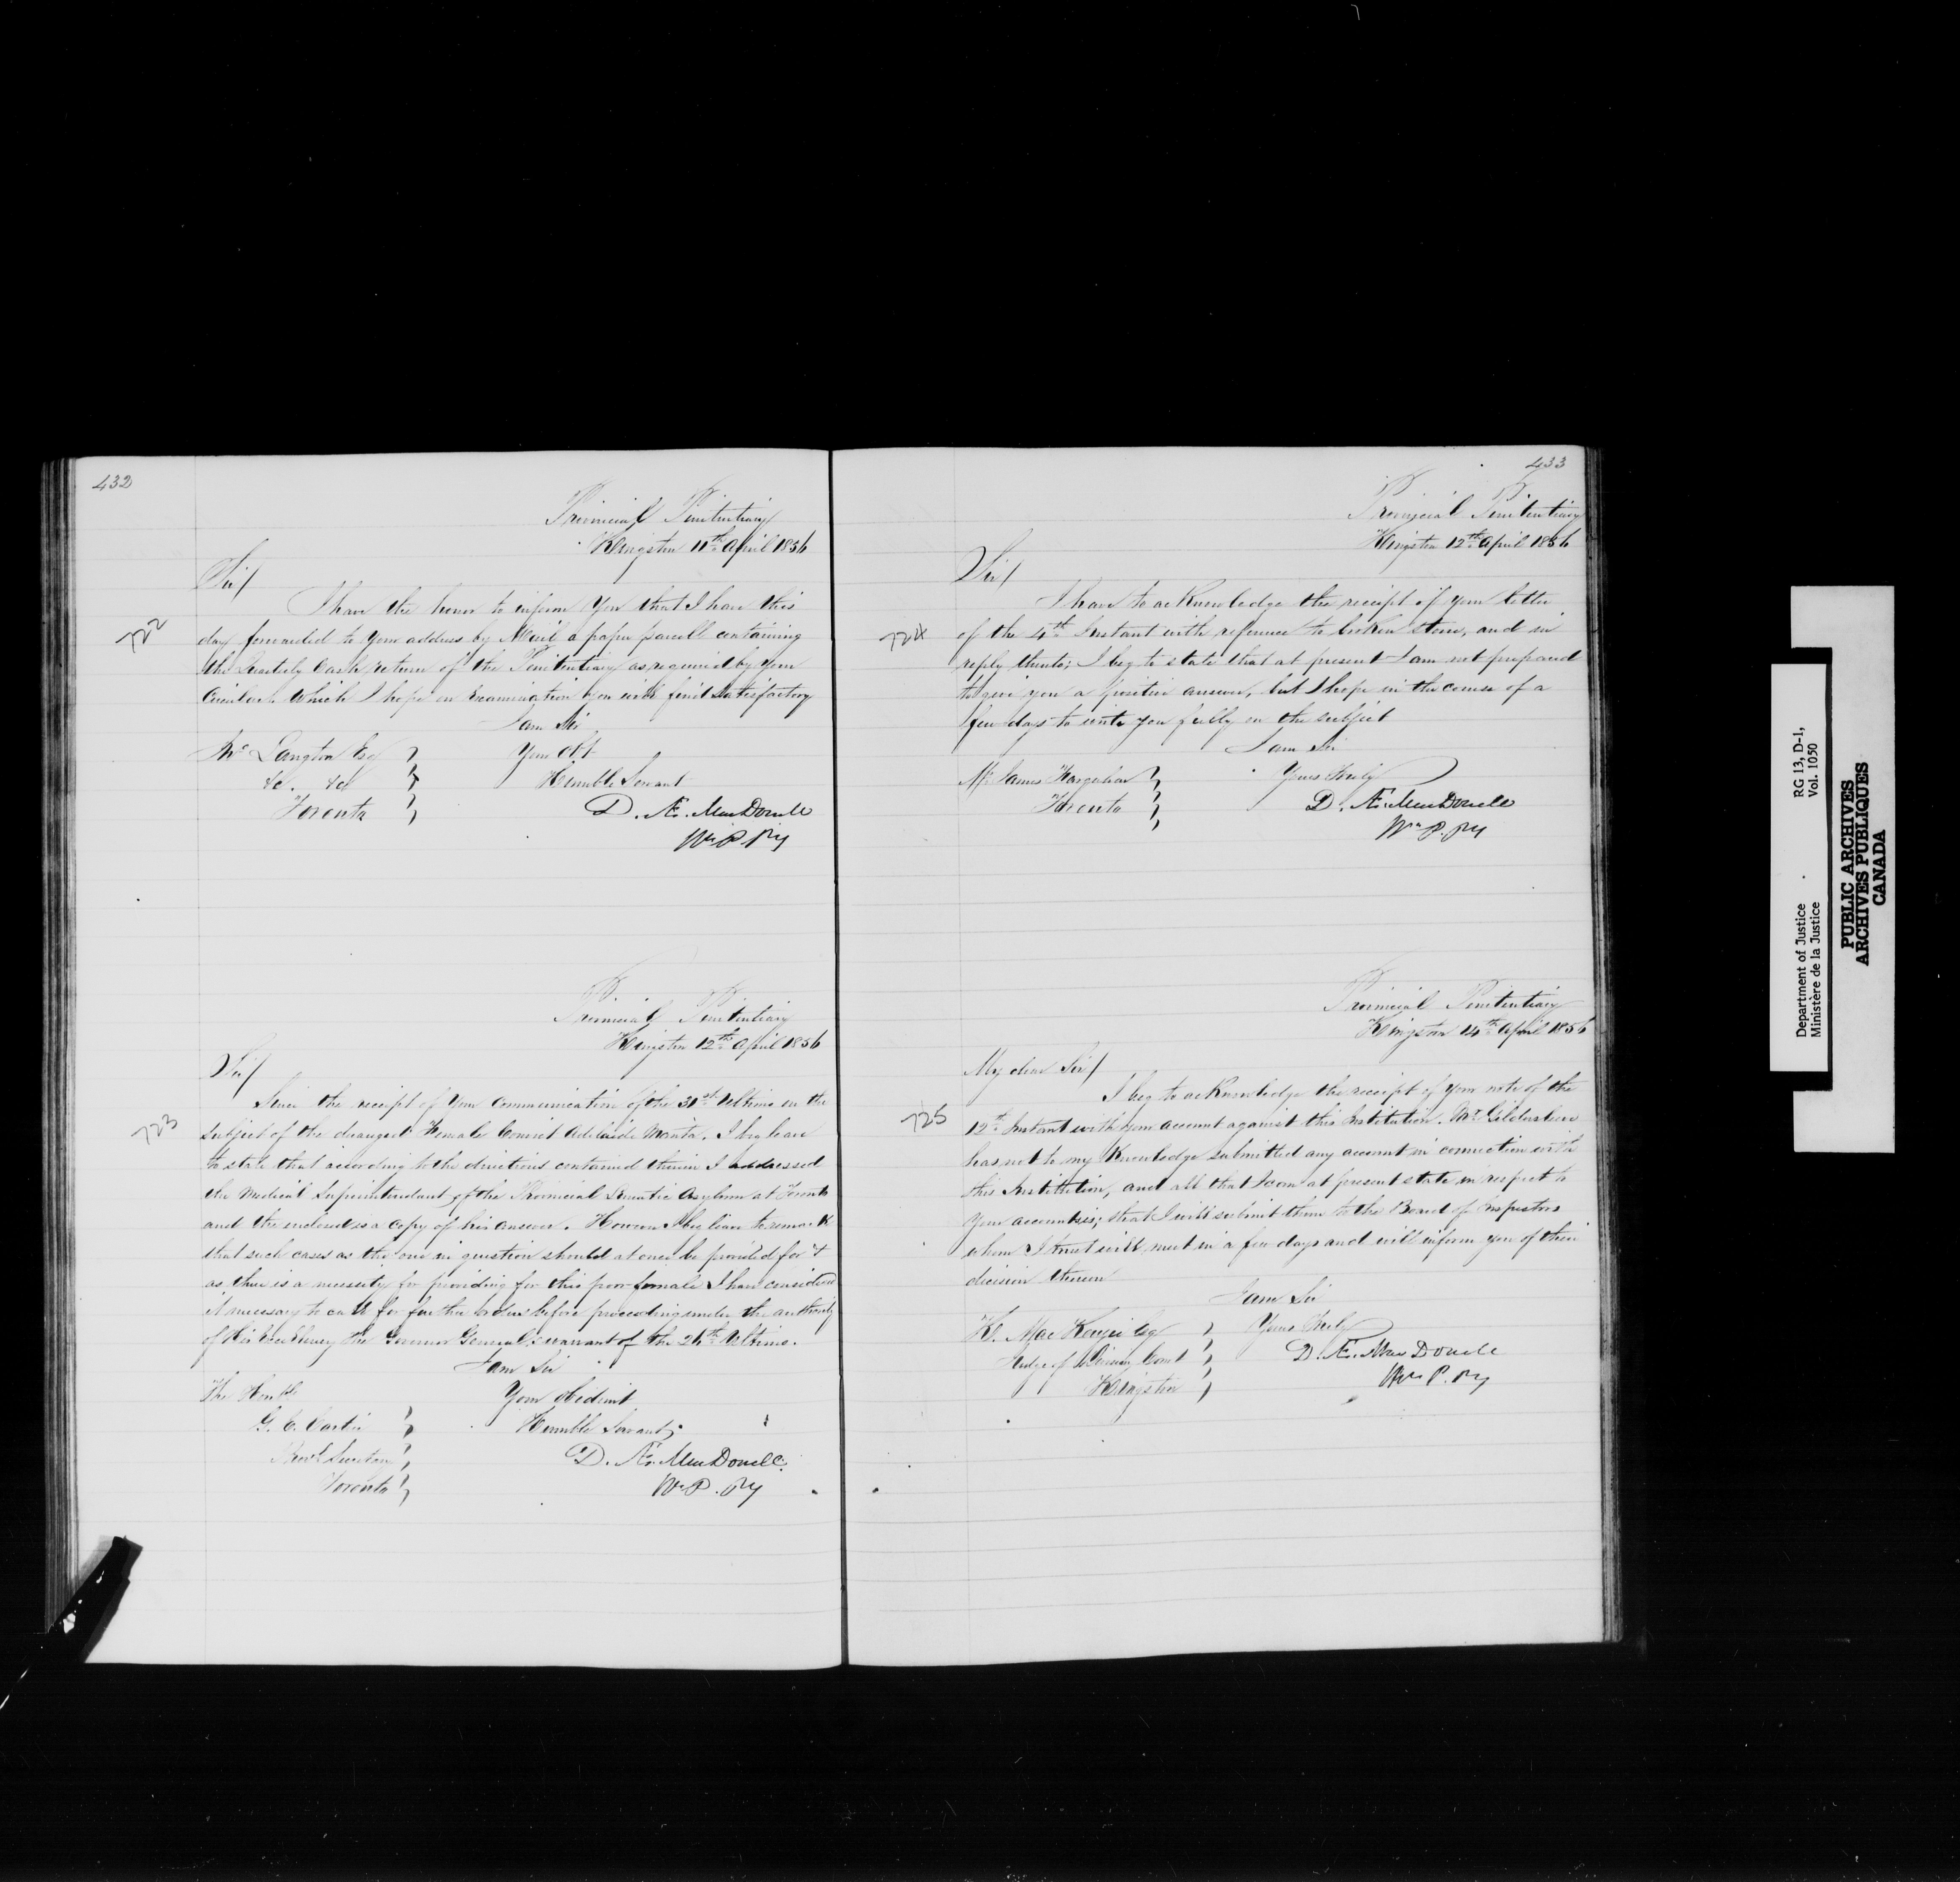 432
Provincial Penitentiary
Kingston 11th April 1856
Sir/
722
I have the honor to inform You that I have this
day forwarded to your address by Mail a paper parcell containing
the Quarterly Cash return of the Penitentiary as required by your
Circular. Which I hope on Examination you will find satisfactory
I am Sir
Jno Langton Esq
Your Obt
&c. &c
Humble Servant
Toronto
D. Æ. MacDonell
Wn P. Py
Provincial Penitentiary
Kingston 12th April 1856
Sir/
723
Since the receipt of Your Communication of the 31st Ultimo on the
subject of the deranged Female Convict Adelaide Manta. I beg leave
to state that according to the directions contained therein I addressed
the Medical Superintendant of the Provincial Lunatic Asylum at Toronto
and the enclosed is a Copy of his answer. However I beg leave to remark
that such cases as the one in question should at once be provided for &
as there is a necessity for providing for this poor female I have considered
it necessary to call for further orders before proceeding under the authority
of His Excellency the Governor General's warrant of the 26th Ultimo.
I am Sir
The Honble
Your Obedient
G. E. Cartier
Humble Servant
Provl Secretary
D. Æ. MacDonell
Toronto
Wn P. Py
433
Provincial Penitentiary
Kingston 12th April 1856
Sir/
724
I have to acknowledge the receipt of your letter
of the 4th Instant with reference to broken stone, and in
reply thereto; I beg to state that at present I am not prepared
to give you a positive answer, but I hope in the course of a
few days to write you fully on the subject
I am Sir
Mr James
Yours Truly
Toronto
D. Æ. MacDonell
Wn P. Py
Provincial Penitentiary
Kingston 14th April 1856
My dear Sir/
725
I beg to acknowledge the receipt of your note of the
12th Instant with your account against this Institution. Mr Gildersleeve
has not to my Knowledge submitted any account in connection with
this Institution, and all that I can at present state in respect to
your account is; that I will submit them to the Board of Inspectors
whom I trust will meet in a few days and will inform you of their
decision thereon
I am Sir
K. MacKenzie Esq
Yours Truly
Judge of County Court
D. Æ. MacDonell
Kingston
Wn P. Py
Department of Justice
Ministère de la Justice
RG 13, D-1,
Vol. 1050
PUBLIC ARCHIVES
ARCHIVES PUBLIQUES
CANADA